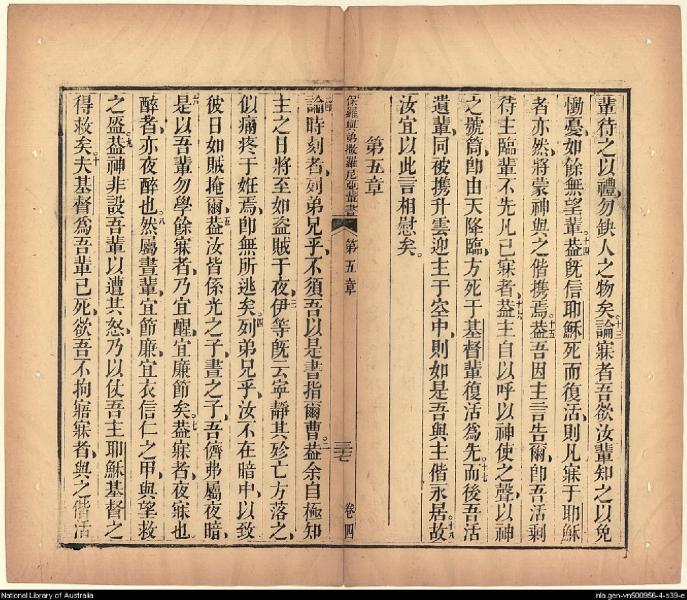 輩待之以禮勿缺人之物矣十三論寐者吾欲汝輩知之以免
慟憂如餘無望輩十四葢旣信耶穌死而復活則凡寐于耶穌
者亦然將蒙神與之偕攜焉十五葢吾因主言告爾卽吾活剩
待主臨輩不先凡已寐者十六葢主自以呼以神使之聲以神
之號筩卽由天降臨方死于基督輩復活爲先十七而後吾活
遺輩同被攜升雲迎主于空中則如是吾與主偕永居十八故
汝宜以此言相慰矣。
第五章
保羅與弟撒羅尼亞輩書 第五章 三七 卷四
論時刻者列弟兄乎不須吾以是書指爾曹二葢余自極知
主之日將至如盜賊于夜三伊等旣云寧靜其殄亡方落之
似痛疼于姙焉卽無所逃矣四列弟兄乎汝不在暗中以致
彼日如賊掩爾五葢汝皆係光之子晝之子吾儕弗屬夜暗
六是以吾輩勿學餘寐者乃宜醒宜廉節矣七葢寐者夜寐也
醉者亦夜醉也八然屬晝輩宜節廉宜衣信仁之甲與望救
之盔九葢神非設吾輩以遭其怒乃以仗吾主耶穌基督之
得救矣十夫基督爲吾輩已死欲吾不拘寤寐者與之偕活
National Library of Australia
nla.gen-vn500956-4-s39-e